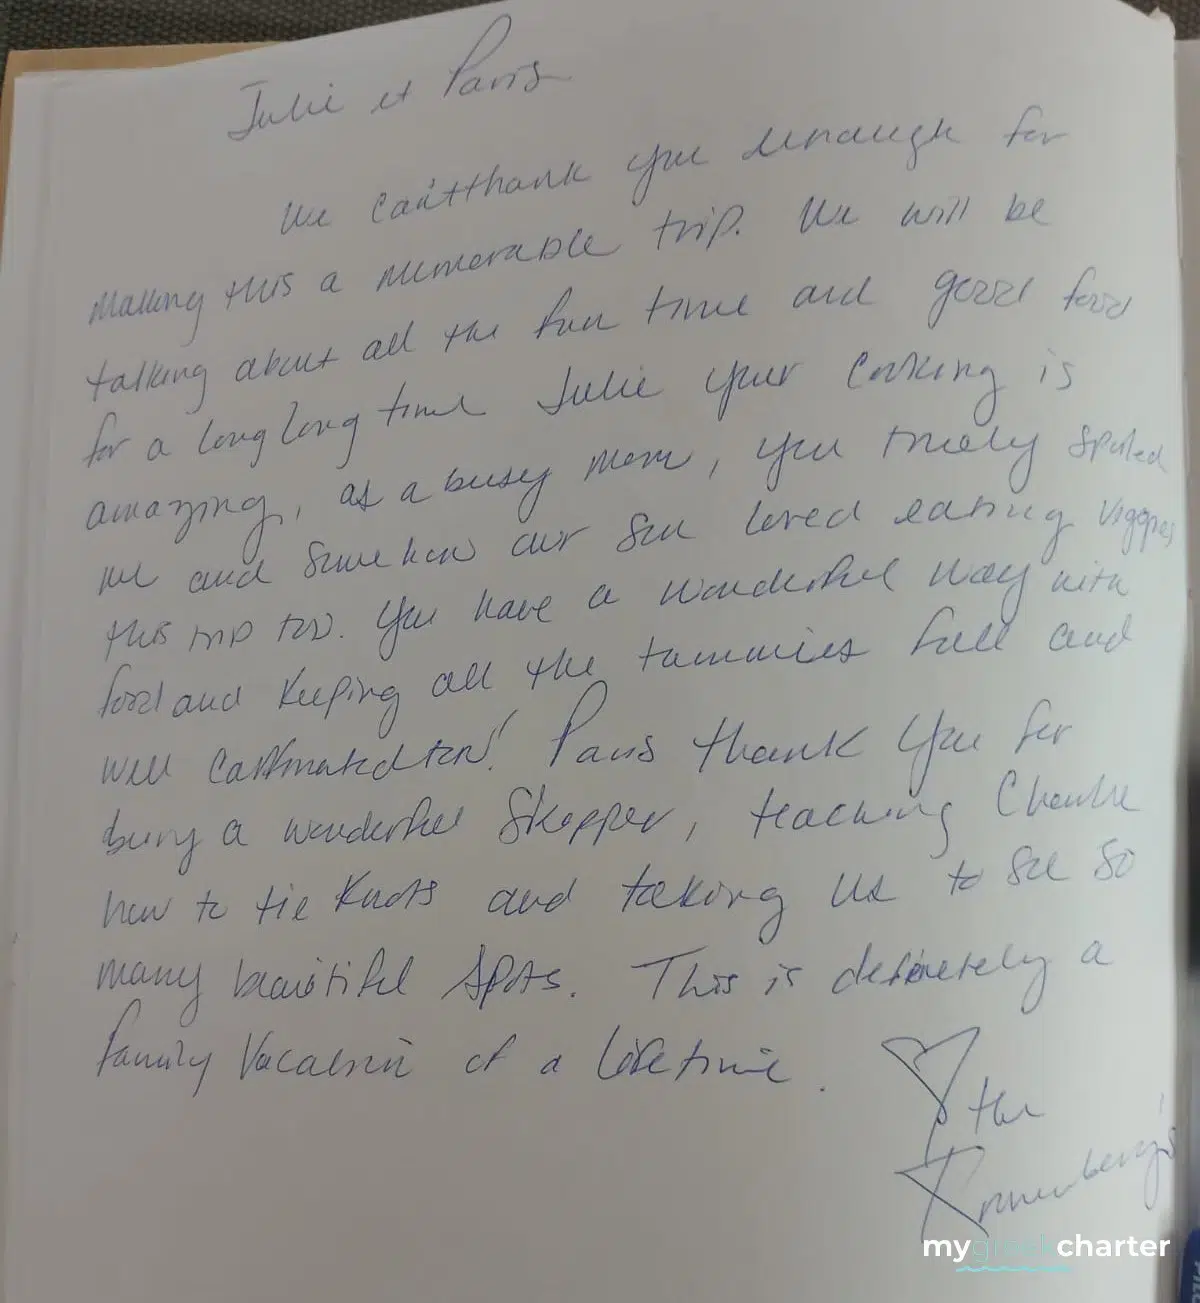 Julie et Paris
We can't thank you enough for
making this a memorable trip. We will be
talking about all the fun time and good food
for a long long time Julie your cooking is
amazing, as a busy mom, you truely spoiled
me and somehow our son loved eating viggies
this trip too. You have a wonderful way with
food and keeping all the tummies full and
well too! Paris thank you for
being a wonderful Skipper, teaching Charlie
how to tie knots and taking us to see so
many beautiful spots. This is definetely a
family vacation of a lifetime.
the
mygreekcharter